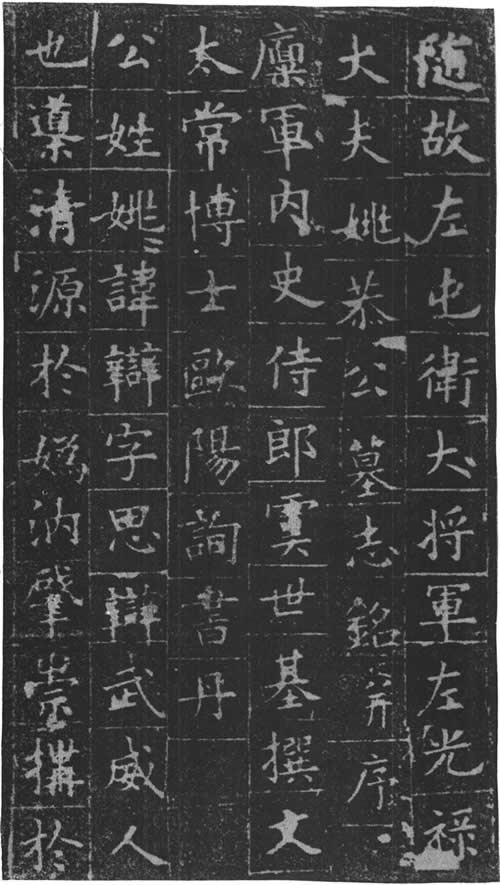 随故左屯衛大将軍左光祿
大夫姚恭公墓志銘并序
廩軍內史侍郎虞世基撰文
太常博士歐陽詢書丹
公姓姚諱辯字思辯武威人
也導清源於媯汭肇崇構於